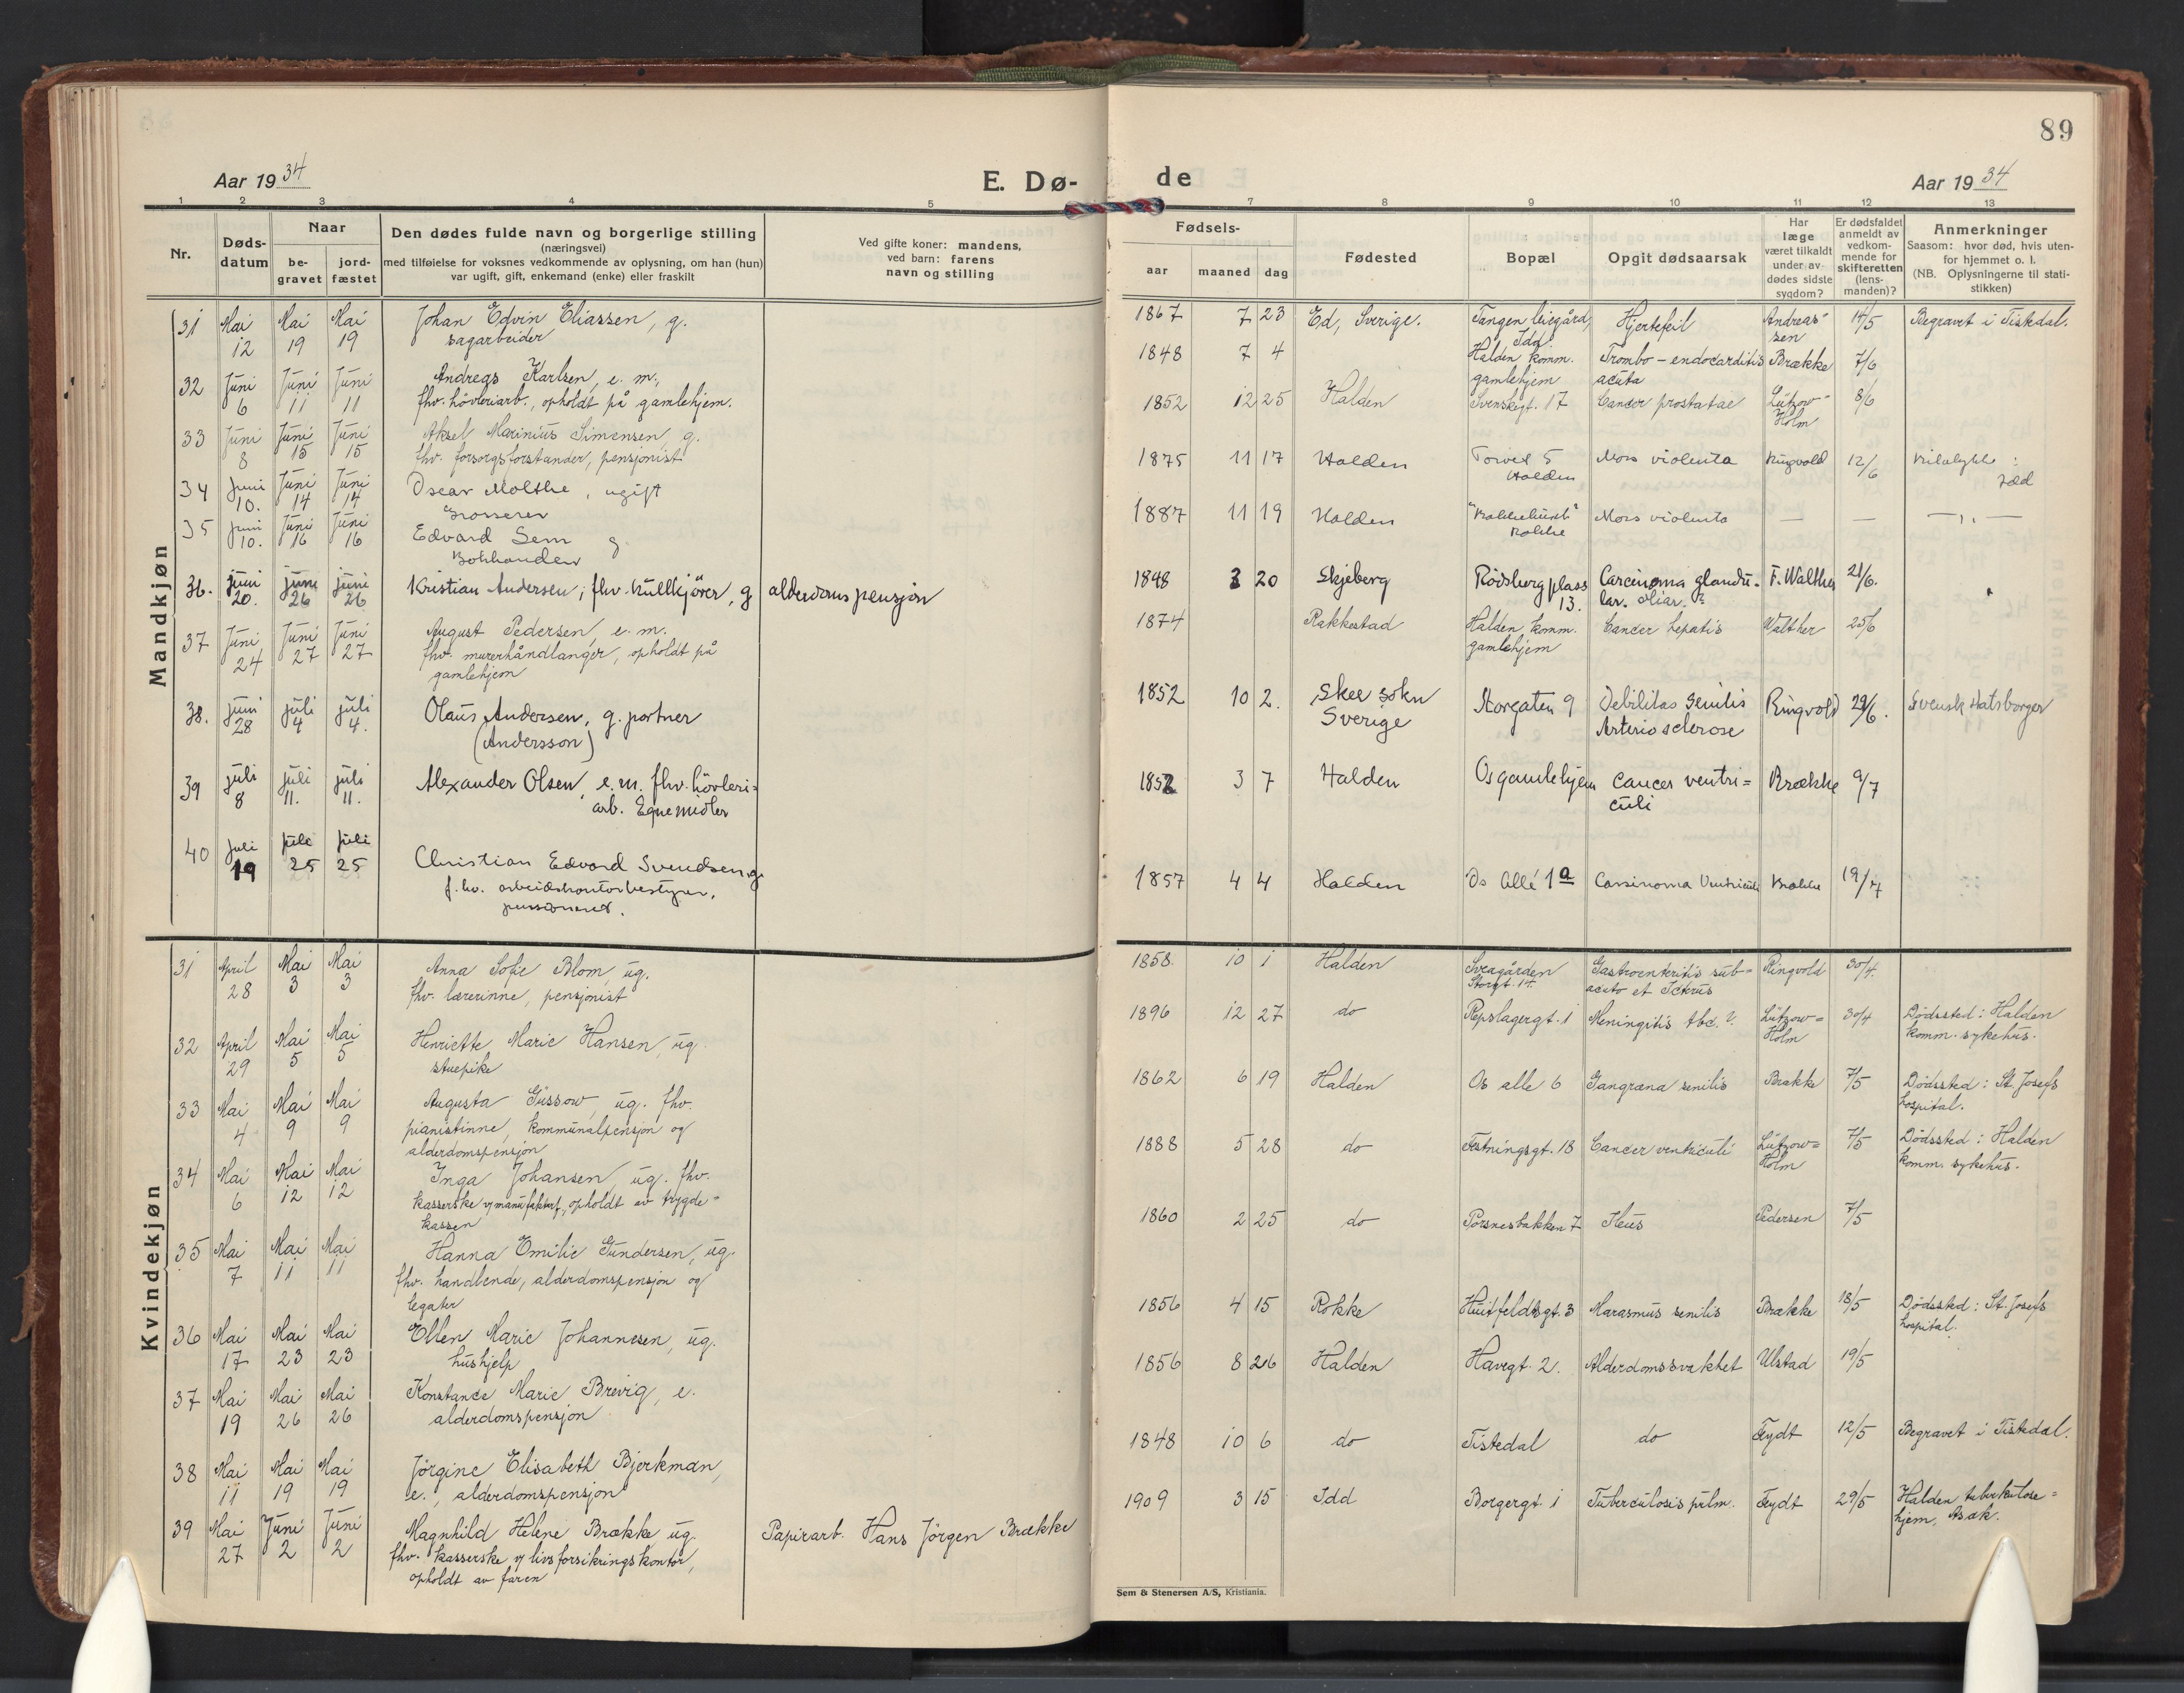 89
Aar 1934
E. Dø-
de
Aar 1934
1 2 3 4 5 7 8 9 10 11 12 13
Nr.
Døds-
datum
Naar
be-
gravet
jord-
fæstet
Den dødes fulde navn og borgerlige stilling
(næringsvei)
med tilføielse for voksnes vedkommende av oplysning, om han (hun)
var ugift, gift, enkemand (enke) eller fraskilt
Ved gifte koner: mandens,
ved barn: farens
navn og stilling
Fødsels-
aar maaned dag
Fødested
Bopæl
Opgit dødsaarsak
Har
læge
været tilkaldt
under av-
dødes sidste
sygdom?
Er dødsfaldet
anmeldt av
vedkom-
mende for
skifteretten
(lens-
manden)?
Anmerkninger
Saasom: hvor død, hvis uten-
for hjemmet o. l.
(NB. Oplysningerne til stati-
stikken)
Mandkjøn
31 Mai 12 Mai 19 Mai 19 Johan Edvin Eliassen, g.
sagarbeider
1867 7 23 Ed, Sverige. Tangen leiegård, Idd. Hjertefeil Andreas-
sen 14/5 Begravet i Tistedal.
32 Juni 6 Juni 11 Juni 11 Andreas Karlsen, e. m.,
fhv. høvleriarb., opholdt på gamlehjem.
1848 7 4 Halden komm.
gamlehjem Trombo-endocarditis
acuta Brække 7/6
33 Juni 8 Juni 15 Juni 15 Aksel Marinius Simensen, g.
fhv. forsorgsforstander, pensjonist
1852 12 25 Halden Svenskegt. 17 Cancer prostatae Lützow-
Holm 8/6
34 Juni 10. Juni 14 Juni 14 Oscar Molthe, ugift
Grosserer
1875 11 17 Halden Torvet 5
Halden Mors violenta Ringvold 12/6 Bilulykke i
Idd
35 Juni 10. Juni 16 Juni 16 Edvard Sem g.
Bokhandler
1887 11 19 Halden Mors violenta — — —"—
36. juni 20. juni 26 juni 26 Kristian Andersen, fhv. kullkjører, g alderdomspensjon
1848 3 20 Skjeberg Rødsberg plass
13. Carcinoma glandu-
lar. F. Walther 21/6.
37 Juni 24 Juni 27 Juni 27 August Pedersen, e. m.
fhv. murerhåndlanger, opholdt på
gamlehjem
1874 Rakkestad Halden komm.
gamlehjem Cancer hepatis Walther 25/6
38. juni 28 juli 4 juli 4. Olaus Andersen, g. portner
(Andersson)
1852 10 2. Skee sokn
Sverige Storgaten 9 Debilitas senilis
Arteriosclerose Ringvold 29/6. Svensk statsborger
39 juli 8 juli 11. juli 11. Alexander Olsen, e. m. fhv. høvleri-
arb. Egne midler
1852 3 7 Halden Os gamlehjem Cancer ventri-
culi Brække 9/7
40 juli 19 juli 25 juli 25 Christian Edvard Svendsen, g.
f. hv. arbeidskontorbestyrer,
pensioneret.
1857 4 4 Halden Os Allé 1a Carsinoma Ventriculi Brække 19/7
Kvindekjøn
31 April 28 Mai 3 Mai 3 Anna Sofie Blom, ug.
fhv. lærerinne, pensjonist
1858. 10 1 Halden Sveagården
Storgt. 14. Gastroenteritis sub-
acuto et Icterus Ringvold 30/4.
32 April 29 Mai 5 Mai 5 Henriette Marie Hansen, ug.
stuepike
1896 12 27 do Repslagergt. 1 Meningitis tbc. ?. Lützow-
Holm 30/4 Dødssted: Halden
komm. sykehus.
33 Mai 4 Mai 9 Mai 9 Augusta Güssow, ug. fhv.
pianistinne, kommunalpensjon og
alderdomspensjon
1862 6 19 Halden Os alle 6 Gangræna senilis Brække 7/5 Dødssted: St. Josefs
hospital.
34 Mai 6 Mai 12 Mai 12 Inga Johansen, ug. fhv.
kasserske v/ manufakturf., opholdt av trygde-
kassen
1888 5 28 do Festningsgt. 18 Cancer ventriculi Lützow-
Holm 7/5 Dødssted: Halden
komm. sykehus.
35 Mai 7 Mai 11 Mai 11 Hanna Emilie Gundersen, ug.
fhv. handlende, alderdomspensjon og
legater
1860 2 25 do Porsnesbakken 7 Ileus Pedersen 7/5
36 Mai 17 Mai 23 Mai 23 Ellen Marie Johannesen, ug.
hushjelp
1856 4 15 Rokke Huitfeldtsgt. 3 Marasmus senilis Brække 18/5 Dødssted: St. Josefs
hospital.
37 Mai 19 Mai 26 Mai 26 Konstance Marie Brevig, e.
alderdomspensjon
1856 8 26 Halden Havegt. 2. Alderdomssvakhet Ulstad 19/5
38 Mai 11 Mai 19 Mai 19 Jørgine Elisabeth Bjerkman,
e., alderdomspensjon
1848 10 6 do Tistedal do Feydt 12/5 Begravet i Tistedal.
39 Mai 27 Juni 2 Juni 2 Magnhild Helene Brække ug.
fhv. kasserske v/ livsforsikringskontor,
opholdt av faren
Papirarb. Hans Jørgen Brække
1909 3 15 Idd Borgergt. 1 Tuberculosis pulm. Feydt 29/5 Halden tuberkulose-
hjem, Asak.
Sem & Stenersen A/S, Kristiania.